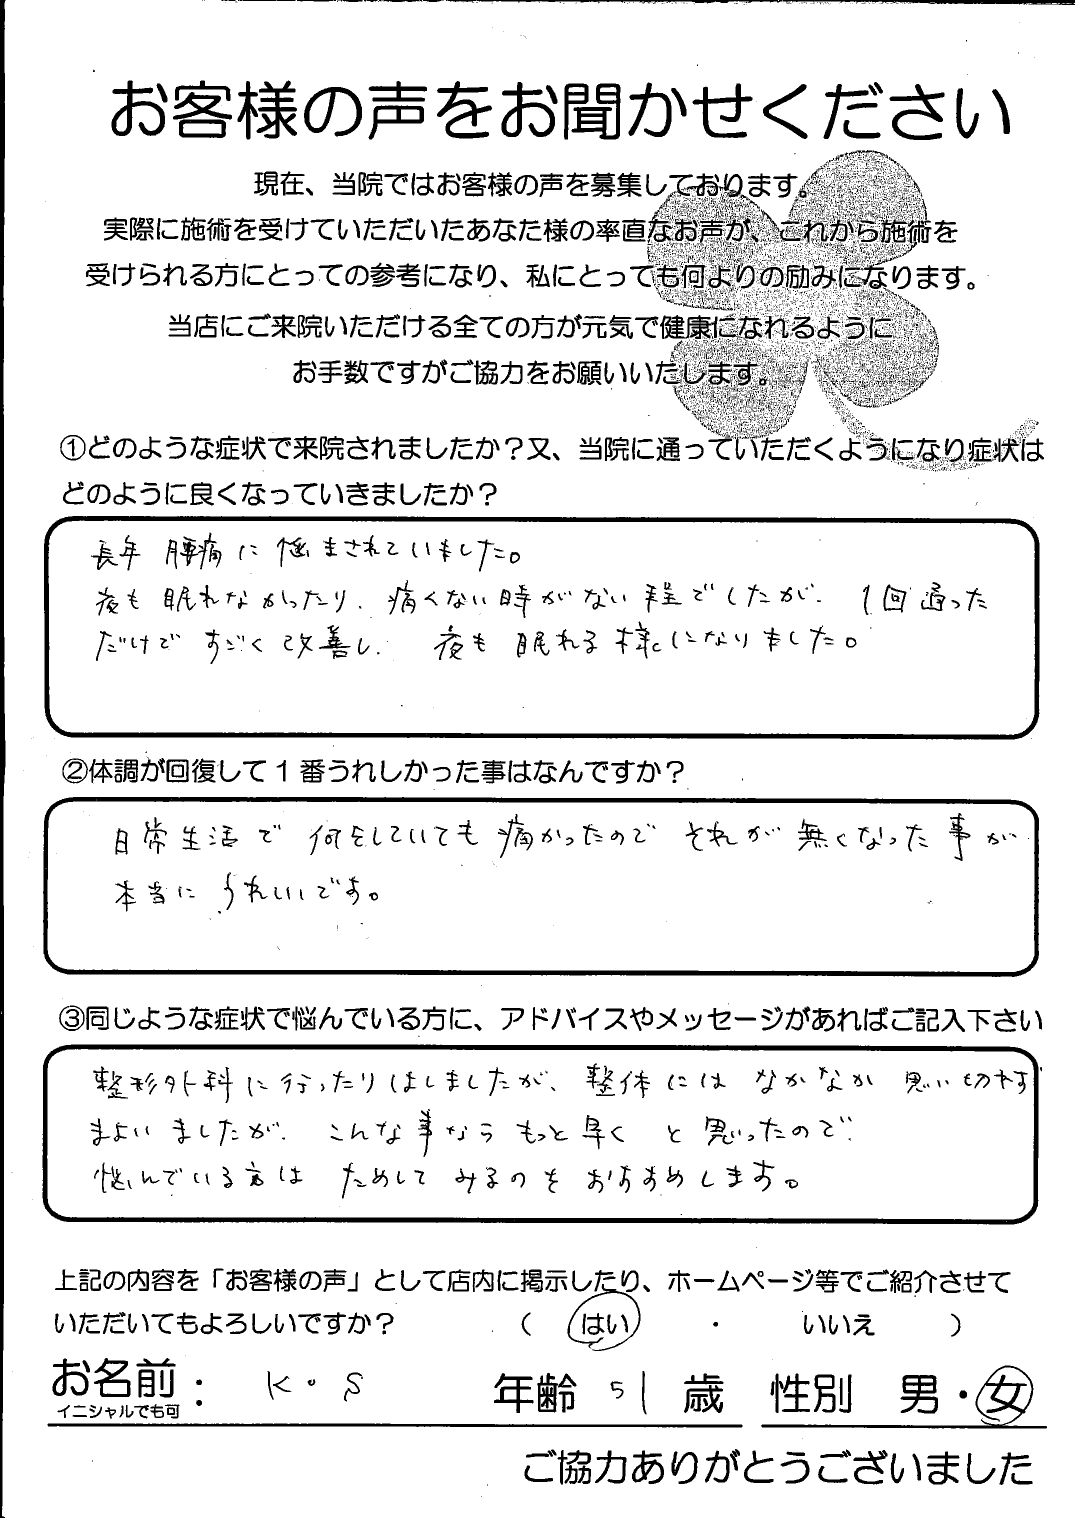 お客様の声をお聞かせください
現在、当院ではお客様の声を募集しております。
実際に施術を受けていただいたあなた様の率直なお声が、これから施術を
受けられる方にとっての参考になり、私にとっても何よりの励みになります。
当店にご来院いただける全ての方が元気で健康になれるように
お手数ですがご協力をお願いいたします。
①どのような症状で来院されましたか？又、当院に通っていただくようになり症状は
どのように良くなっていきましたか？
長年 腰痛に悩まされていました。
夜も眠れなかったり、痛くない時がない程でしたが、1回通った
だけで すごく改善し、夜も眠れる様になりました。
②体調が回復して1番うれしかった事はなんですか？
日常生活で 何をしていても痛かったので それが無くなった事が
本当に うれしいです。
③同じような症状で悩んでいる方に、アドバイスやメッセージがあればご記入下さい
整形外科に行ったりはしましたが、整体には なかなか 思い切れず
まよいましたが、こんな事なら もっと早く と思ったので、
悩んでいる方は ためしてみるのを おすすめします。
上記の内容を「お客様の声」として店内に掲示したり、ホームページ等でご紹介させて
いただいてもよろしいですか？ （ はい ・ いいえ ）
お名前： K・S 年齢 51 歳 性別 男・女
イニシャルでも可
ご協力ありがとうございました